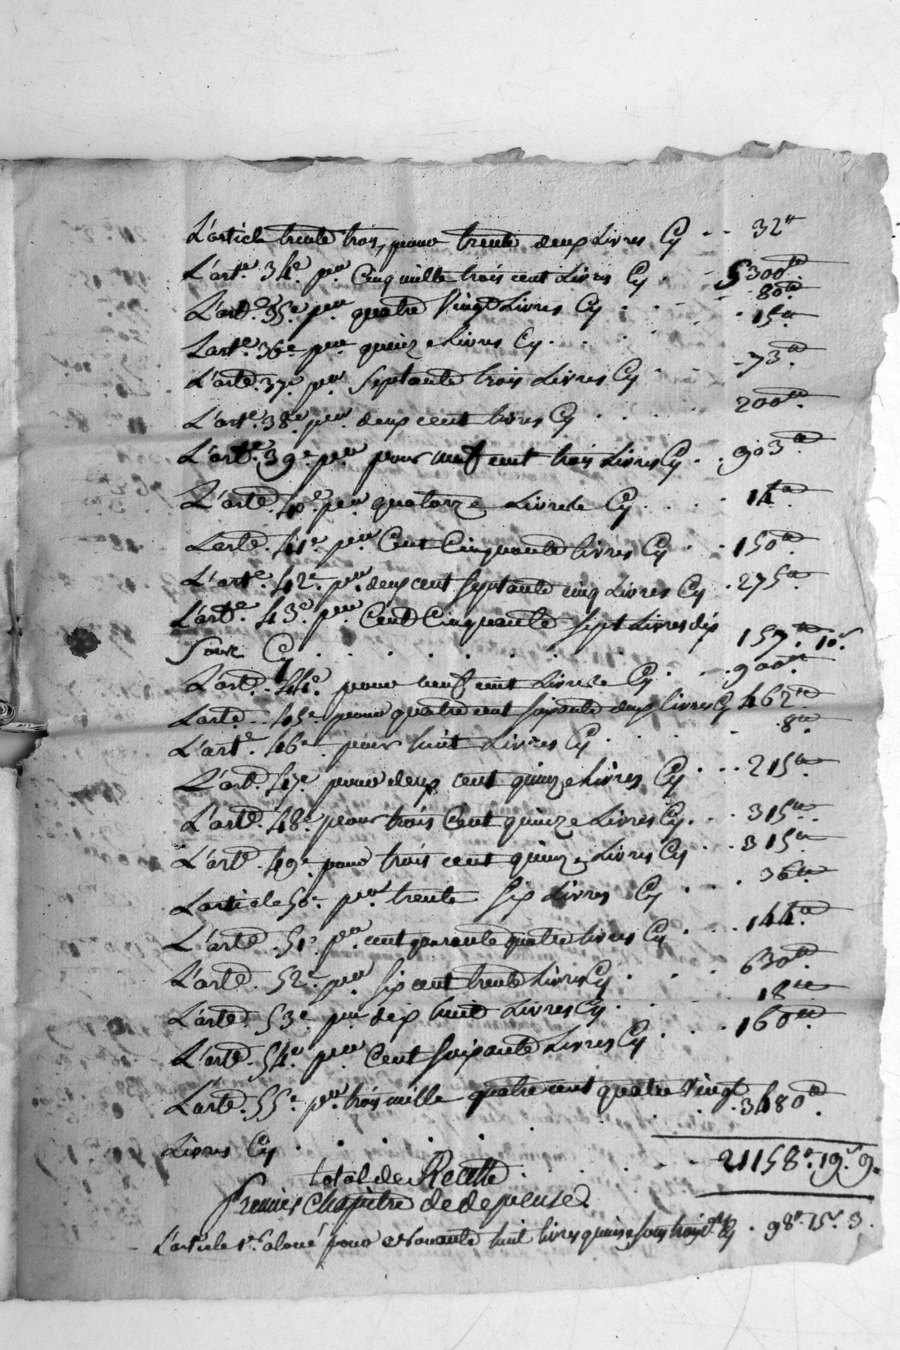 L'article trente trois, pour trente deux Livres Cy . . 32tt
L'arte. 34e. pour Cinq mille trois cent Livres Cy . 5300tt
L'arte. 35e. pour quatre Vingt Livres Cy . . . 80tt
L'arte. 36e. pour quinze Livres Cy . . . 15tt
L'arte. 37e. pour Septante trois Livres Cy . . 73tt
L'arte. 38e. pour deux cent livres Cy . . . 200tt
L'arte. 39e. pour pour neuf cent trois Livres Cy . . 903tt
L'arte. 40e. pour quatorze Livres Cy . . . 14tt
L'arte. 41e. pour Cent Cinquante livres Cy . . 150tt
L'arte. 42e. pour deux cent septante cinq Livres Cy . 275tt
L'arte. 43e. pour Cent Cinquante Sept Livres dix
Sous Cy . . . . . . . 157tt. 10s.
L'arte. 44e. pour neuf cent Livres Cy . . . 900tt
L'arte. 45e. pour quatre cent soixante deux livres Cy 462tt
L'arte. 46e. pour huit Livres Cy . . . . 8tt
L'arte. 47e. pour deux cent quinze Livres Cy . . . 215tt
L'arte. 48e. pour trois Cent quinze Livres Cy . . . 315tt
L'arte. 49e. pour trois cent quinze Livres Cy . . 315tt
L'article 50e. pour trente Six Livres Cy . . . 36tt
L'arte. 51e. pour cent quarante quatre livres Cy . . . 144tt
L'arte. 52e. pour six cent trente Livres Cy . . . 630tt
L'arte. 53e. pour dix huit Livres Cy . . . 18tt
L'arte. 54e. pour Cent Soixante Livres Cy . . . 160tt
L'arte. 55e. pour trois mille quatre cent quatre Vingt
Livres Cy . . . . . 3480tt
total de Recette . . . 21158tt. 19s. 9.
Premier Chapitre de depense
L'article 1er. aloué pour nonante huit livres quinze sous trois d. Cy . 98tt. 15s. 3.